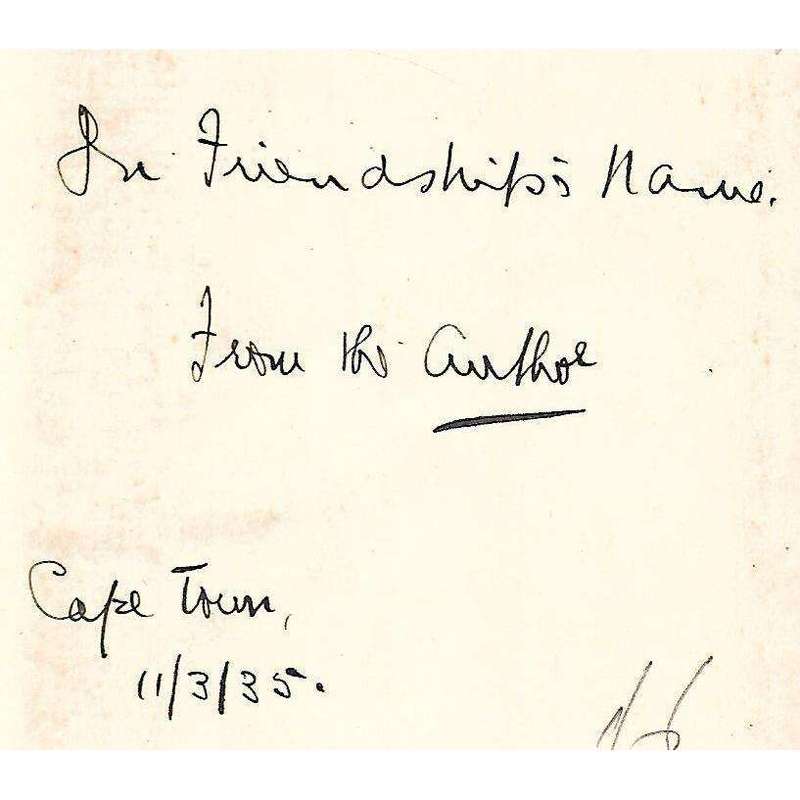 In Friendship's Name.
From the Author
Cape Town,
11/3/35.